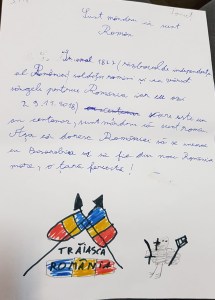 Sunt mândru că sunt
Român
În anul 1877 (războiul de independență
al României) soldații români și-au vărsat
sângele pentru România iar eu azi
29.11.2018, care este
un centenar, sunt mândru că sunt român.
Așa că doresc României să se unească
cu Basarabia și să fie din nou România
mare, o țară fericită!
TRĂIASCĂ
ROMÂNIA